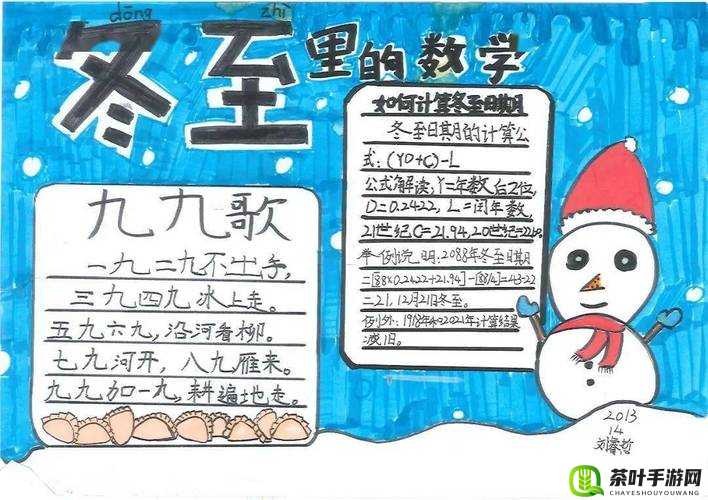 dōng zhì
冬至里的数学
如何计算冬至日期
冬至日期的计算公
式:(YD+C)-L
公式解读,Y=年数后2位,
D=0.2422,L=闰年数,
21世纪C=21.94,20世纪=22.60。
举例说明:2088年冬至日期
=[88×0.2422+21.94]-[88/4]=43-22
=21,12月21日冬至。
例外:1918年和2021年计算结果
减1日。
九九歌
一九二九不出手,
三九四九冰上走。
五九六九,沿河看柳。
七九河开,八九雁来。
九九加一九,耕遍地走。
2013
14
刘睿哲
茶叶手游网
CHAYESHOUYOUWANG